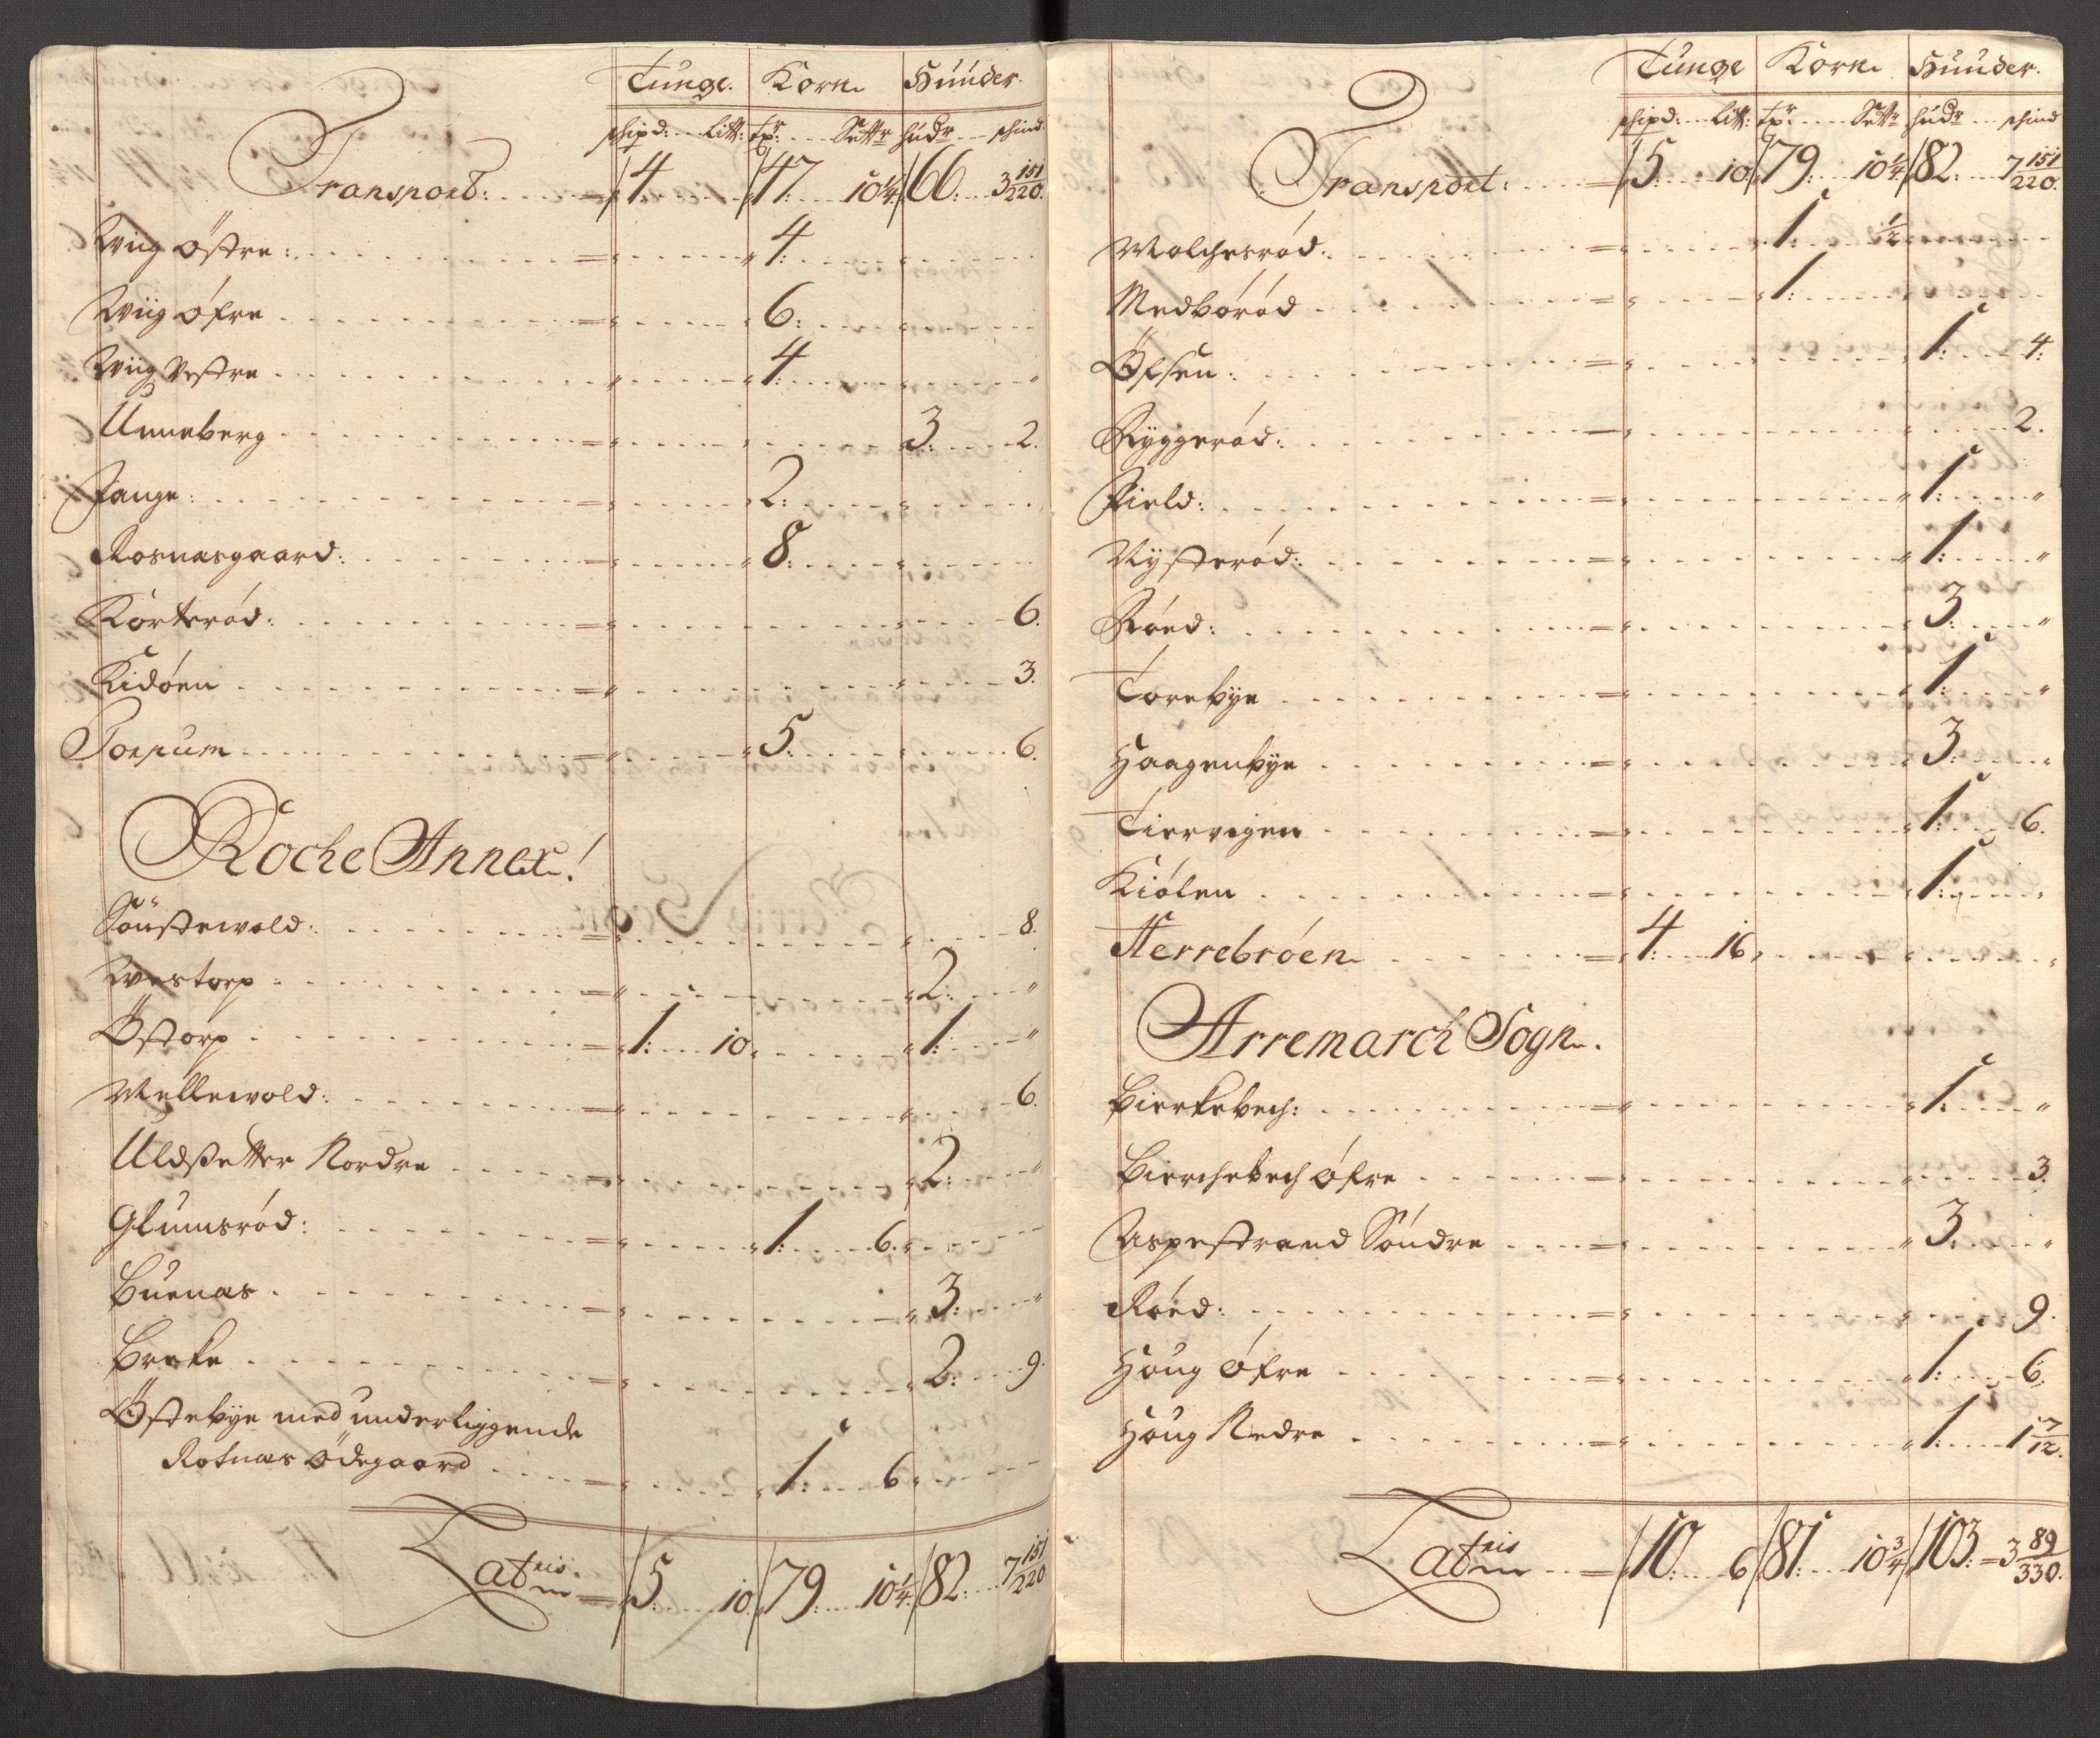 Tunge. Korn Huuder.
schipd: Litt: tꝑr: Settr hudr schind
Transport: 4 47 10¼ 66: 3 151/220.
Wiig Östre: 4
Wiig Öfre 6:
Wiig Vestre 4
Unneberg 3: 2.
Fange: 2:
Rosnasgaard: 8
Korterød: 6.
Kidöen 3.
Torpum 5: 6.
Rocke Annex!
Söustewold: 8.
Westorp 2: "
Östorp 1: 10. 1: "
Mellewold: 6.
Uldßetter Nordre 2: "
Glumsrød: 1: 6.
Buenas 3: "
Breke 2: 9.
Östebye med underliggende
Rotnas Ödegaard 1: 6
Latris 5: 10. 79 10¼ 82: 7 151/220
Tunge Korn Huuder.
schipd: Litt: tꝑr: Settr hudr schind
Transport: 5: 10 79: 10¼ 82: 7 151/220.
Molchesrød: 1: ½
Medbörød 1:
Öfsen: 1: 4.
Ryggerød: 2.
Field: 1: "
Nysterød: 1: "
Röed: 3: "
Torebye 1: "
Haagenbye 3: "
Tiervigen 1: 6.
Kiölen 1: "
Herrebröen 4: 16,
Arremarch Sogn.
Bierkebech: 1: "
Bierchebech Öfre 3.
Aspestrand Söndre 3: "
Röed: 9.
Houg Öfre 1: 6.
Houg Nedre 1: 1 7/12.
Latris 10: 6 81: 10¾ 103: 3 89/330.